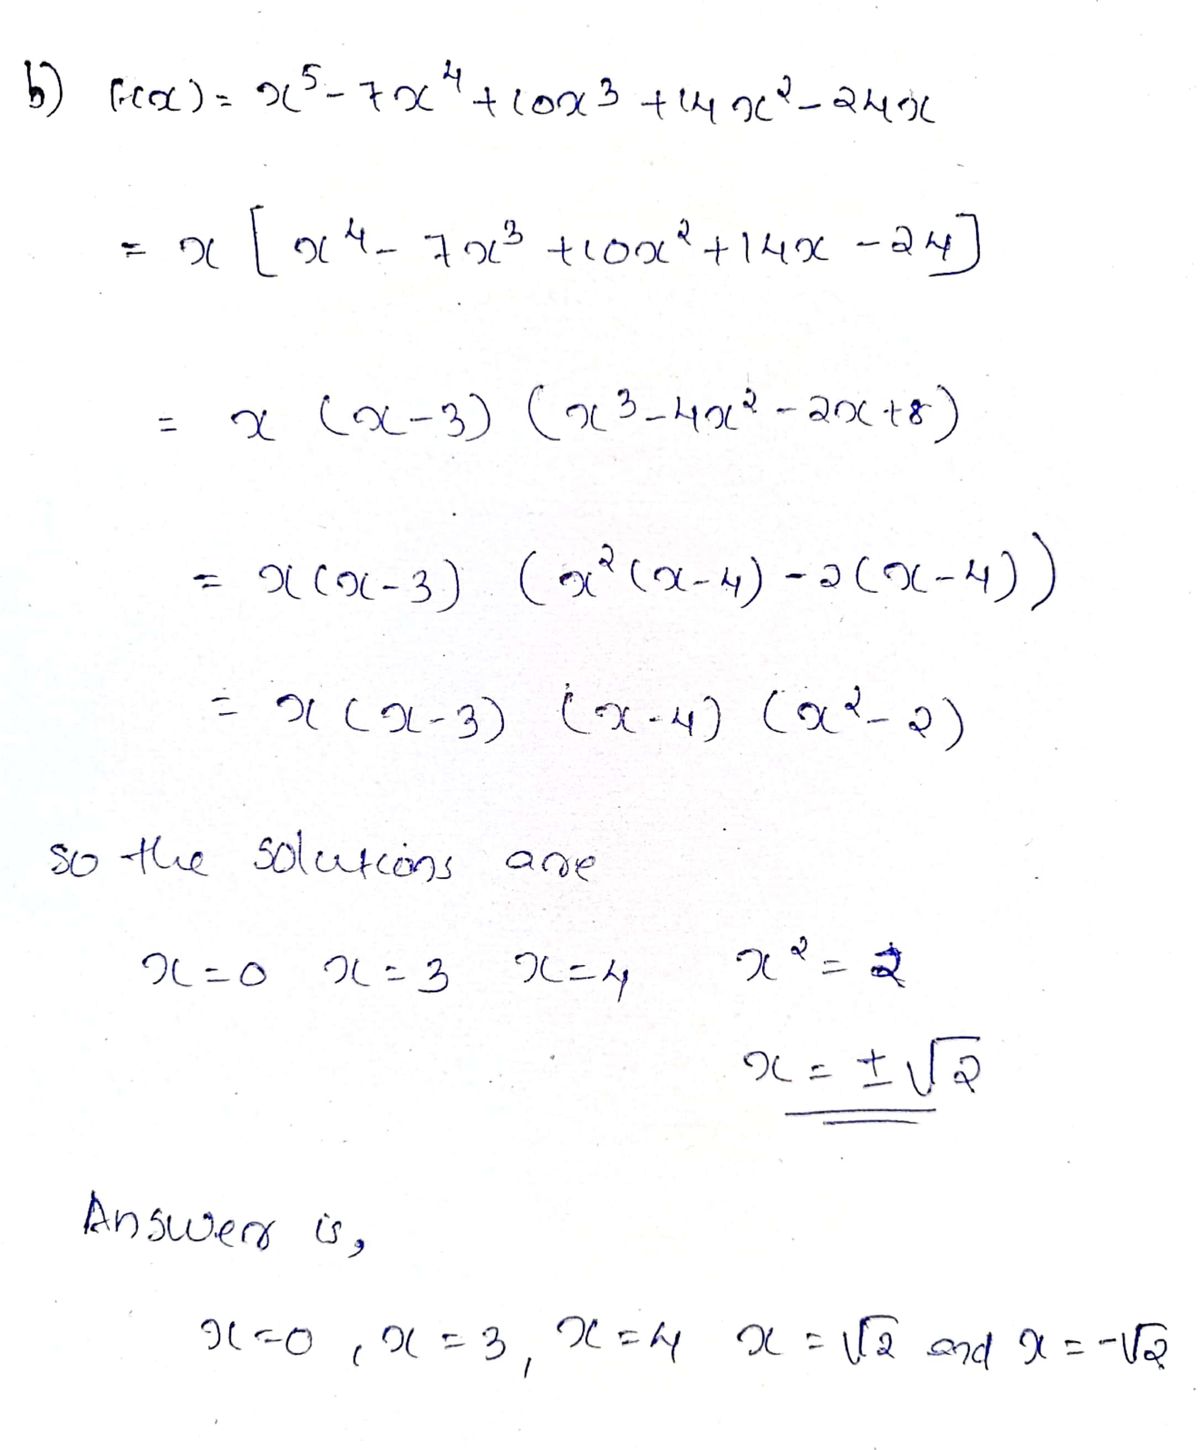 b) F(x) = x⁵ - 7x⁴ + 10x³ + 14x² - 24x
= x [x⁴ - 7x³ + 10x² + 14x - 24]
= x (x-3) (x³ - 4x² - 2x + 8)
= x(x-3) (x²(x-4) - 2(x-4))
= x(x-3) (x-4) (x² - 2)
so the solutions are
x = 0 x = 3 x = 4 x² = 2
x = ± √2
Answer is,
x = 0, x = 3, x = 4 x = √2 and x = -√2